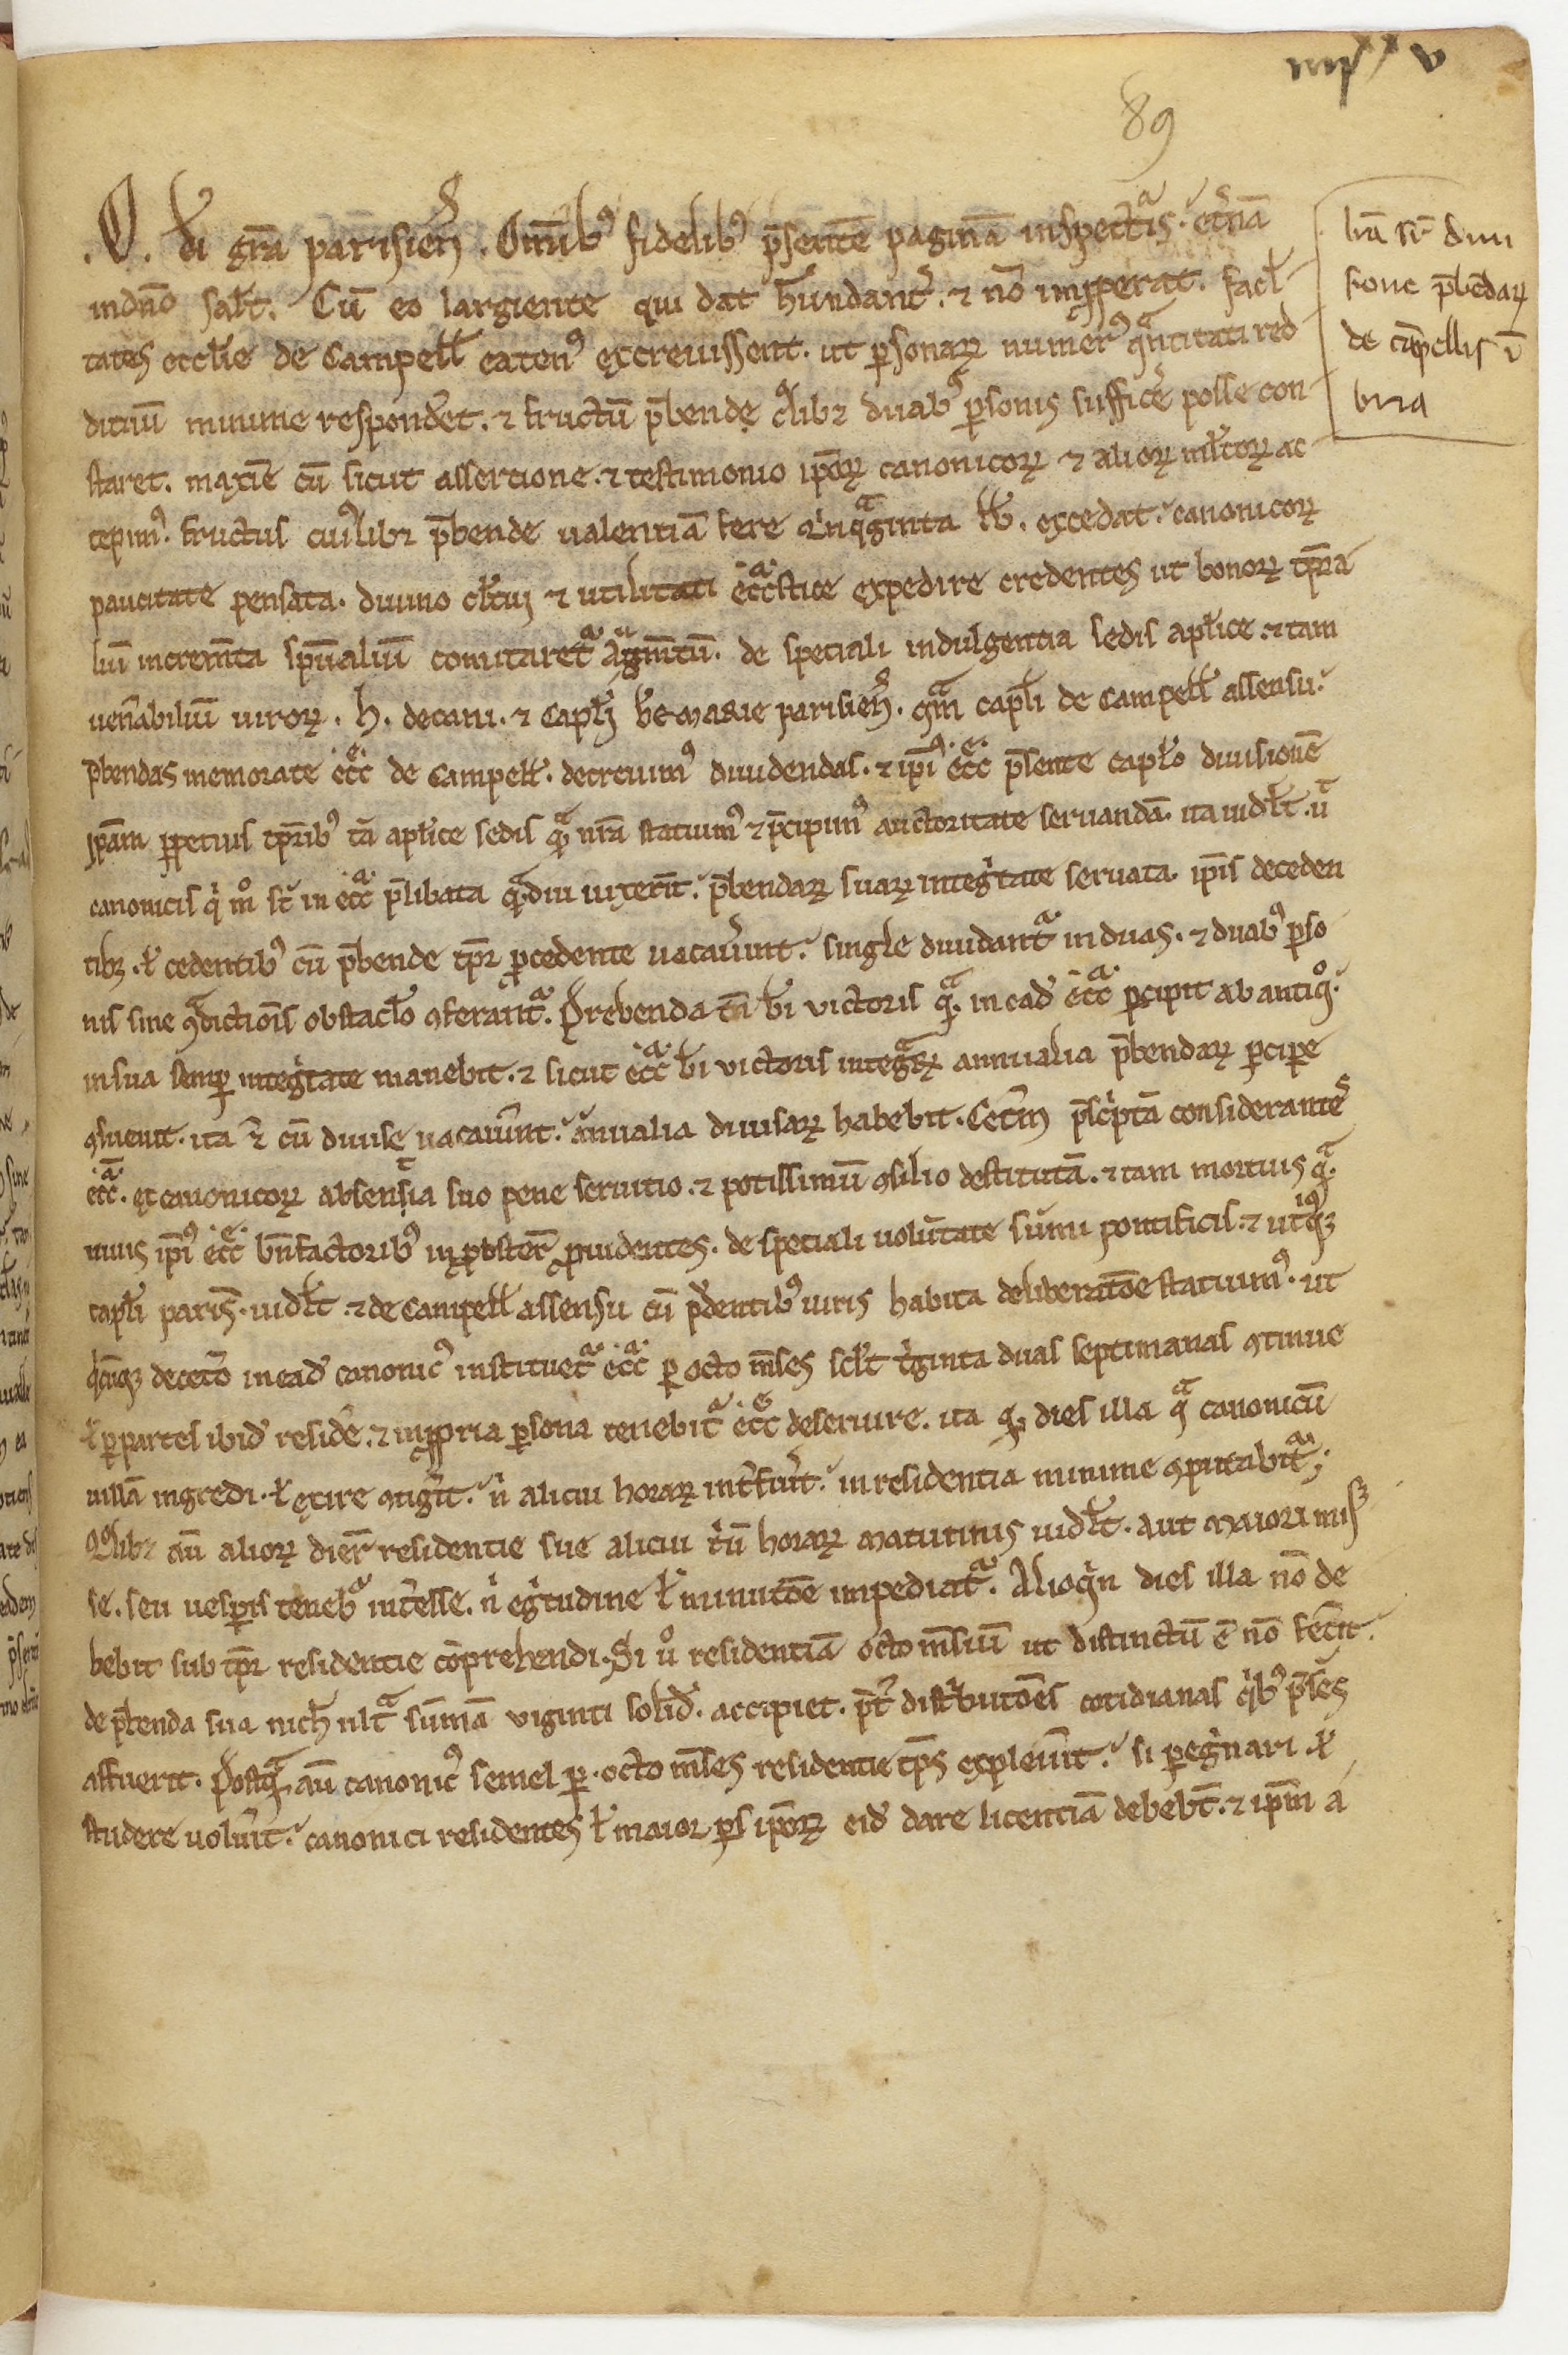 iiiixx v
89
.O. di gr̄a parisien̄. Om̄ibꝰ fidelibꝰ p̄sentē paginā inspectᵃis. et̄nā
in dn̄o sałt. Cū eo largiente qui dat hūndant̄. ⁊ nō imꝓperat. facl̄
tates eccłie de Campełł eatenꝰ excreuissent. ut ꝑsonaꝝ numer̄ꝰ qᵃntitati red
dituū minime respondet̄. ⁊ fructū p̄bende cꝰlibꝫ duabꝰ ꝑsonis sufficē posse con
staret. maxīe cū sicut assertione. ⁊ testimonio ip̄oꝝ canonicoꝝ ⁊ alioꝝ młtoꝝ ac
cepimꝰ. fructus cuiꝰlibꝫ p̄bende ualentiā fere qͥnqᵃginta łb. excedat. canonicoꝝ
paucitate pensata. diuino cłtui ⁊ utilitati ecc̄astice expedire credentes ut bonoꝝ tp̄ra
liū increm̄ta sp̄ualiū comitaretᵃ agm̄tū. de speciali indulgentia sedis apłice. ⁊ tam
uen̄abiliū uiroꝝ. H. decani. ⁊ Capłi b̄e Marie parisien̄. qᵃm capłi de Campełł assensu.
p̄bendas memorate ecc̄e de Campełł. decreuimꝰ diuidendas. ⁊ ip̄iꝰ ecc̄e p̄sente capło diuisionē
ip̄am ꝑpetuis tp̄ribꝰ tā apłice sedis qᵃ nr̄a statuimꝰ ⁊ p̄cipimꝰ auctoritate seruandā. ita uidełt. ut
canonicis qͥ mͦ st̄ in ecc̄a p̄libata qᵃdiu uixerīt. p̄bendaꝝ suaꝝ integͥtate seruata. ip̄is deceden
tibꝫ. ł cedentibꝰ cū p̄bende tp̄r ꝓcedente uacau̾int. singłe diuidantᵃ in duas. ⁊ duabꝰ ꝑso
nis sine ꝯᵃdictiōis obstacło ꝯferantᵃ. Prebenda tn̄ b̄i victoris qᵃ. in ead̄ ecc̄a ꝑcipit ab antiqͦ.
in sua semꝑ integͥtate manebit. ⁊ sicut ecc̄a b̄i victoris integᵃꝝ annualia p̄bendaꝝ ꝑcipe
ꝯsueuit. ita ⁊ cū diuise uacau̾int. ānualia diuisaꝝ habebit. Cet̄m p̄scͥptā considerantes
ecc̄ā. ex canonicoꝝ absentia suo pene seruitio. ⁊ potissimū ꝯsilio destitutā. ⁊ tam mortuis qᵃ.
uiuis ip̄iꝰ ecc̄e bn̄factoribꝰ in poster̄ ꝓuidentes. de speciali volūtate sūmi pontificis. ⁊ utꝰqꝫ
capłi paris̄. uidełt. ⁊ de Campełł assensu cū p̄dentibꝰ uiris habita deliberatōe statuimꝰ. ut
qͥcūqꝫ decet̄o in ead̄ canonicꝰ instituetᵃ ecc̄a ꝑ octo m̄ses scłt tͥginta duas septimanas ꝯtinue
ł ꝑ partes ibid̄ residē. ⁊ in ꝓpria ꝑsona tenebitᵃ ecc̄e deseruire. ita ꝙ dies illa qᵃ canonicū
uillā ingredi. ł exire ꝯtigīt. n̄ alicui horaꝝ int̄fu̾it. in residentia minime ꝯputabitᵃ;
Qͦlibꝫ aū alioꝝ dier̄ residentie sue alicui tͥū horaꝝ matutinis uidełt. aut maiori mis
se. seu uesꝑis tenebᵃ int̄esse. nͥ egͥtudine ł minutōe impediatᵃ. Alioqͥn dies illa nō de
bebit sub tp̄r residentie cōprehendi. Si uͦ residentiā octo m̄siū ut distinctū ē nō fec̄it.
de p̄benda sua nich̄ ultᵃ sūmā viginti solid̄. accipiet. p̄t̄ distͥbutōes cotidianas qͥbꝰ p̄ses
affuerit. Postqᵃ aū canonicꝰ semel ꝑ. octo m̄ses residentie tp̄s expleu̾it. si ꝑegͥnari. ł
studere uolu̾it. canonici residentes ł maior ꝑs ip̄oꝝ eid̄ dare licentiā debebt̄. ⁊ ip̄m a
lr̄a sr̄ diui
sione p̄bēdaꝝ
de cāpellis ī
bria